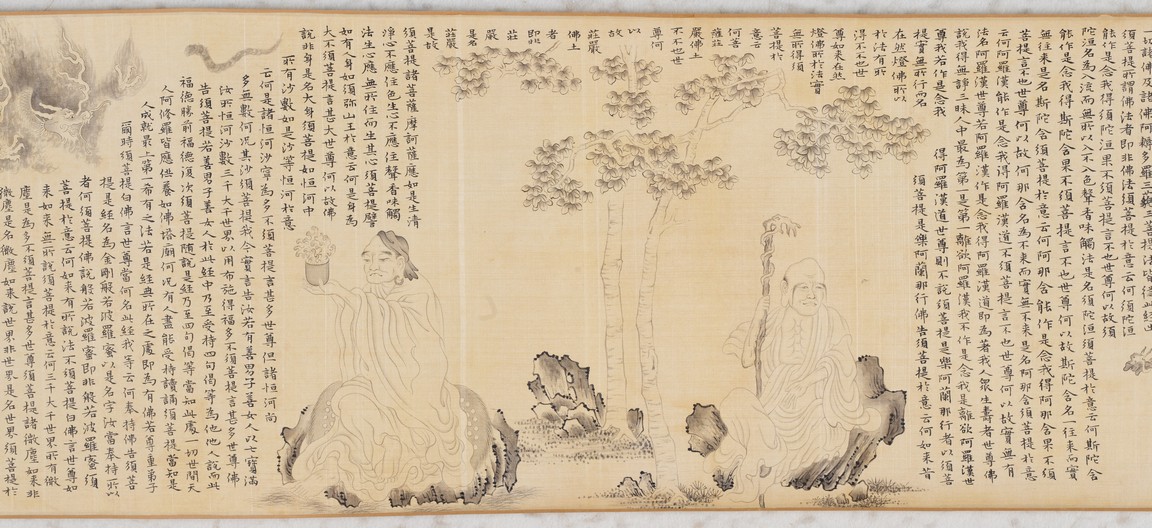 切諸佛及諸佛阿耨多羅三藐三菩提法皆從此經出
須菩提所謂佛法者即非佛法須菩提於意云何須陀洹
能作是念我得須陀洹果不須菩提言不也世尊何以故須
陀洹名為入流而無所入不入色聲香味觸法是名須陀洹須菩提於意云何斯陀含
能作是念我得斯陀含果不須菩提言不也世尊何以故斯陀含名一往來而實
無往來是名斯陀含須菩提於意云何阿那含能作是念我得阿那含果不須
菩提言不也世尊何以故阿那含名為不來而實無不來是名阿那含須菩提於意
云何阿羅漢能作是念我得阿羅漢道不須菩提言不也世尊何以故實無有
法名阿羅漢世尊若阿羅漢作是念我得阿羅漢道即為著我人眾生壽者世尊佛
說我得無諍三昧人中最為第一是第一離欲阿羅漢我不作是念我是離欲阿羅漢世
尊我若作是念我得阿羅漢道世尊則不說須菩提是樂阿蘭那行者以須菩
提實無所行而名須菩提是樂阿蘭那行佛告須菩提於意云何如來昔
在然燈佛所以
於法有所
得不不也世
尊如來在然
燈佛所於法實
無所得須
菩提於
意云
何菩
薩莊
嚴佛土
不不也世
尊何
以
故
莊嚴
佛土
者
即非
莊
嚴
是名
莊嚴
是故
須菩提諸菩薩摩訶薩應如是生清
淨心不應住色生心不應住聲香味觸
法生心應無所住而生其心須菩提譬
如有人身如須彌山王於意云何是身為
大不須菩提言甚大世尊何以故佛
說非身是名大身須菩提如恒河中
所有沙數如是沙等恒河於意
云何是諸恒河沙寧為多不須菩提言甚多世尊但諸恒河尚
多無數何況其沙須菩提我今實言告汝若有善男子善女人以七寶滿
尔所恒河沙數三千大千世界以用布施得福多不須菩提言甚多世尊佛
告須菩提若善男子善女人於此經中乃至受持四句偈等為他人說而此
福德勝前福德復次須菩提隨說是經乃至四句偈等當知此處一切世間天
人阿修羅皆應供養如佛塔廟何況有人盡能受持讀誦須菩提當知是
人成就最上第一希有之法若是經典所在之處即為有佛若尊重弟子
爾時須菩提白佛言世尊當何名此經我等云何奉持佛告須菩
提是經名為金剛般若波羅蜜以是名字汝當奉持所以
者何須菩提佛說般若波羅蜜即非般若波羅蜜須
菩提於意云何如來有所說法不須菩提白佛言世尊如
來如來無所說須菩提於意云何三千大千世界所有微
塵是為多不須菩提言甚多世尊須菩提諸微塵如來非
微塵是名微塵如來說世界非世界是名世界須菩提於